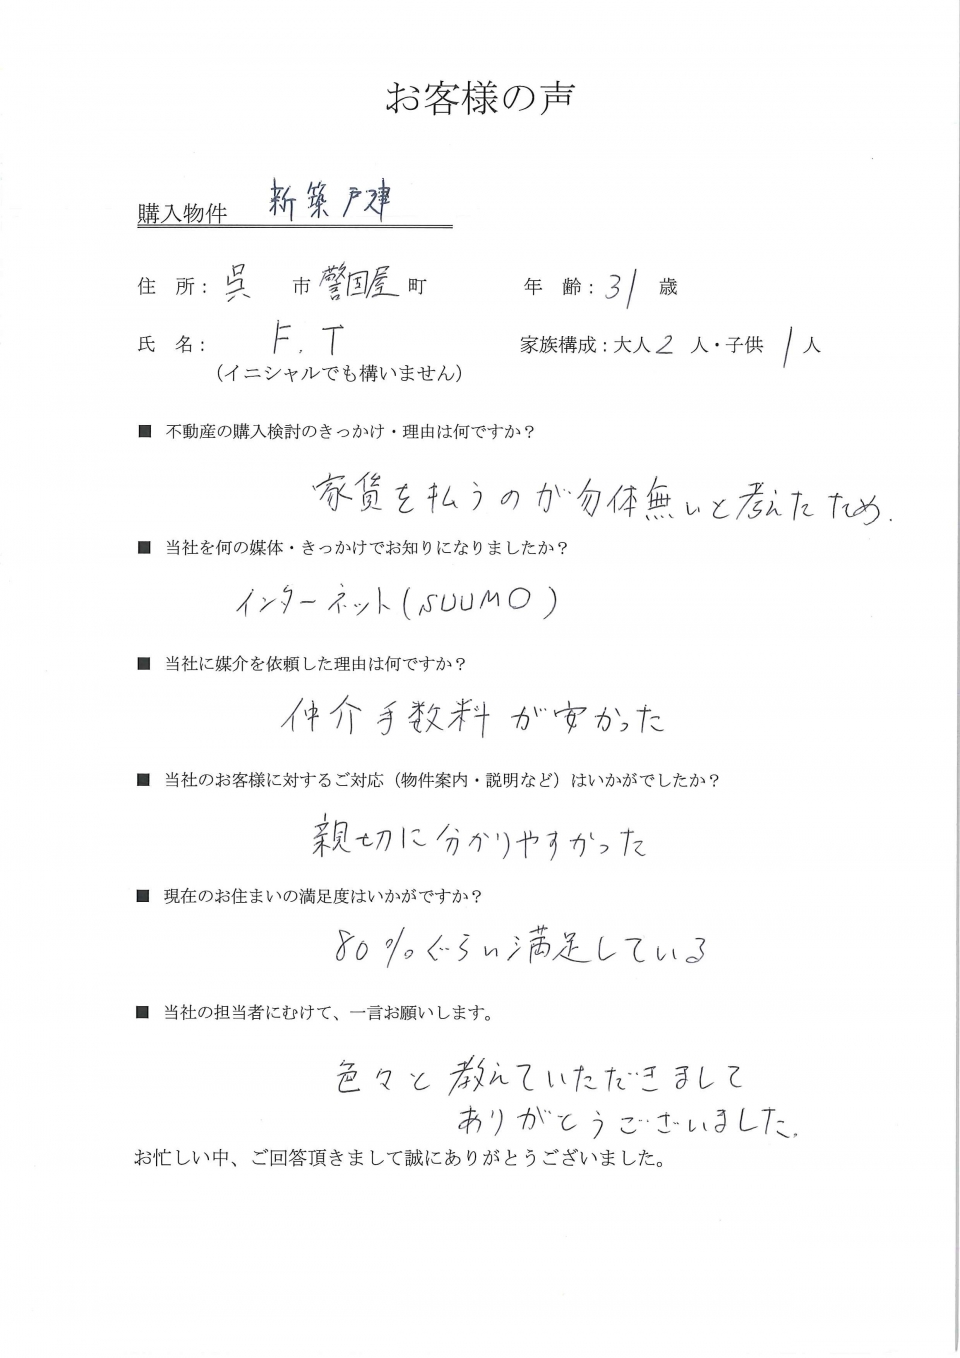 お客様の声
購入物件 新築戸建
住 所： 呉 市 警固屋 町 年 齢：31 歳
氏 名： F.T 家族構成：大人 2 人・子供 1 人
（イニシャルでも構いません）
■ 不動産の購入検討のきっかけ・理由は何ですか？
家賃を払うのが勿体無いと考えたため.
■ 当社を何の媒体・きっかけでお知りになりましたか？
インターネット(SUUMO)
■ 当社に媒介を依頼した理由は何ですか？
仲介手数料が安かった
■ 当社のお客様に対するご対応（物件案内・説明など）はいかがでしたか？
親切に分かりやすかった
■ 現在のお住まいの満足度はいかがですか？
80%ぐらい満足している
■ 当社の担当者にむけて、一言お願いします。
色々と教えていただきまして
ありがとうございました.
お忙しい中、ご回答頂きまして誠にありがとうございました。